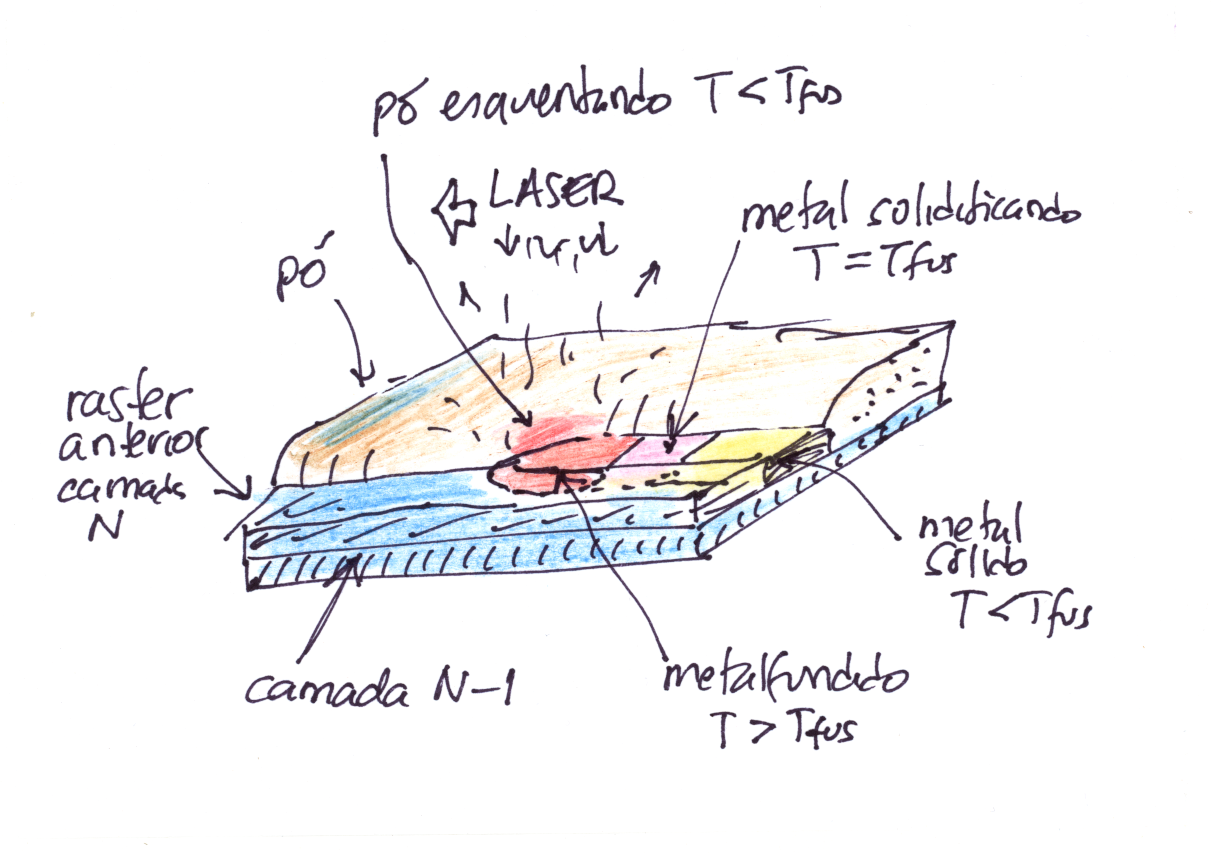 pó esquentando T < Tfus
LASER
metal solidificando
T = Tfus
pó
raster
anterior
camada
N
metal
sólido
T < Tfus
camada N-1
metal fundido
T > Tfus